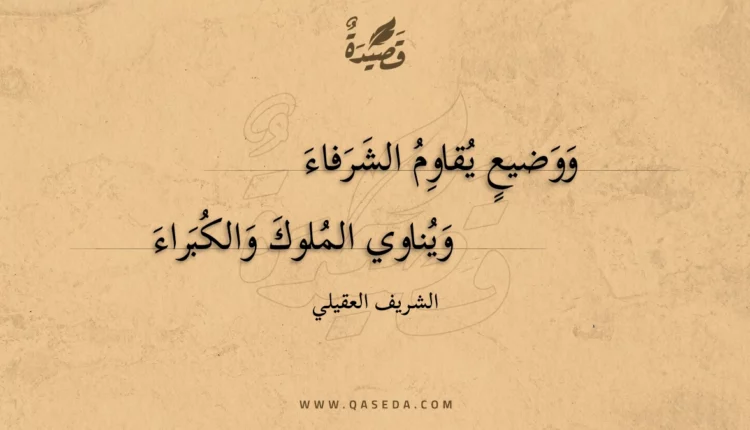 قَصِيْدَةٌ
وَوَضيعٍ يُقاوِمُ الشَرَفاءَ
وَيُناوي المُلوكَ وَالكُبَراءَ
الشريف العقيلي
WWW.QASEDA.COM